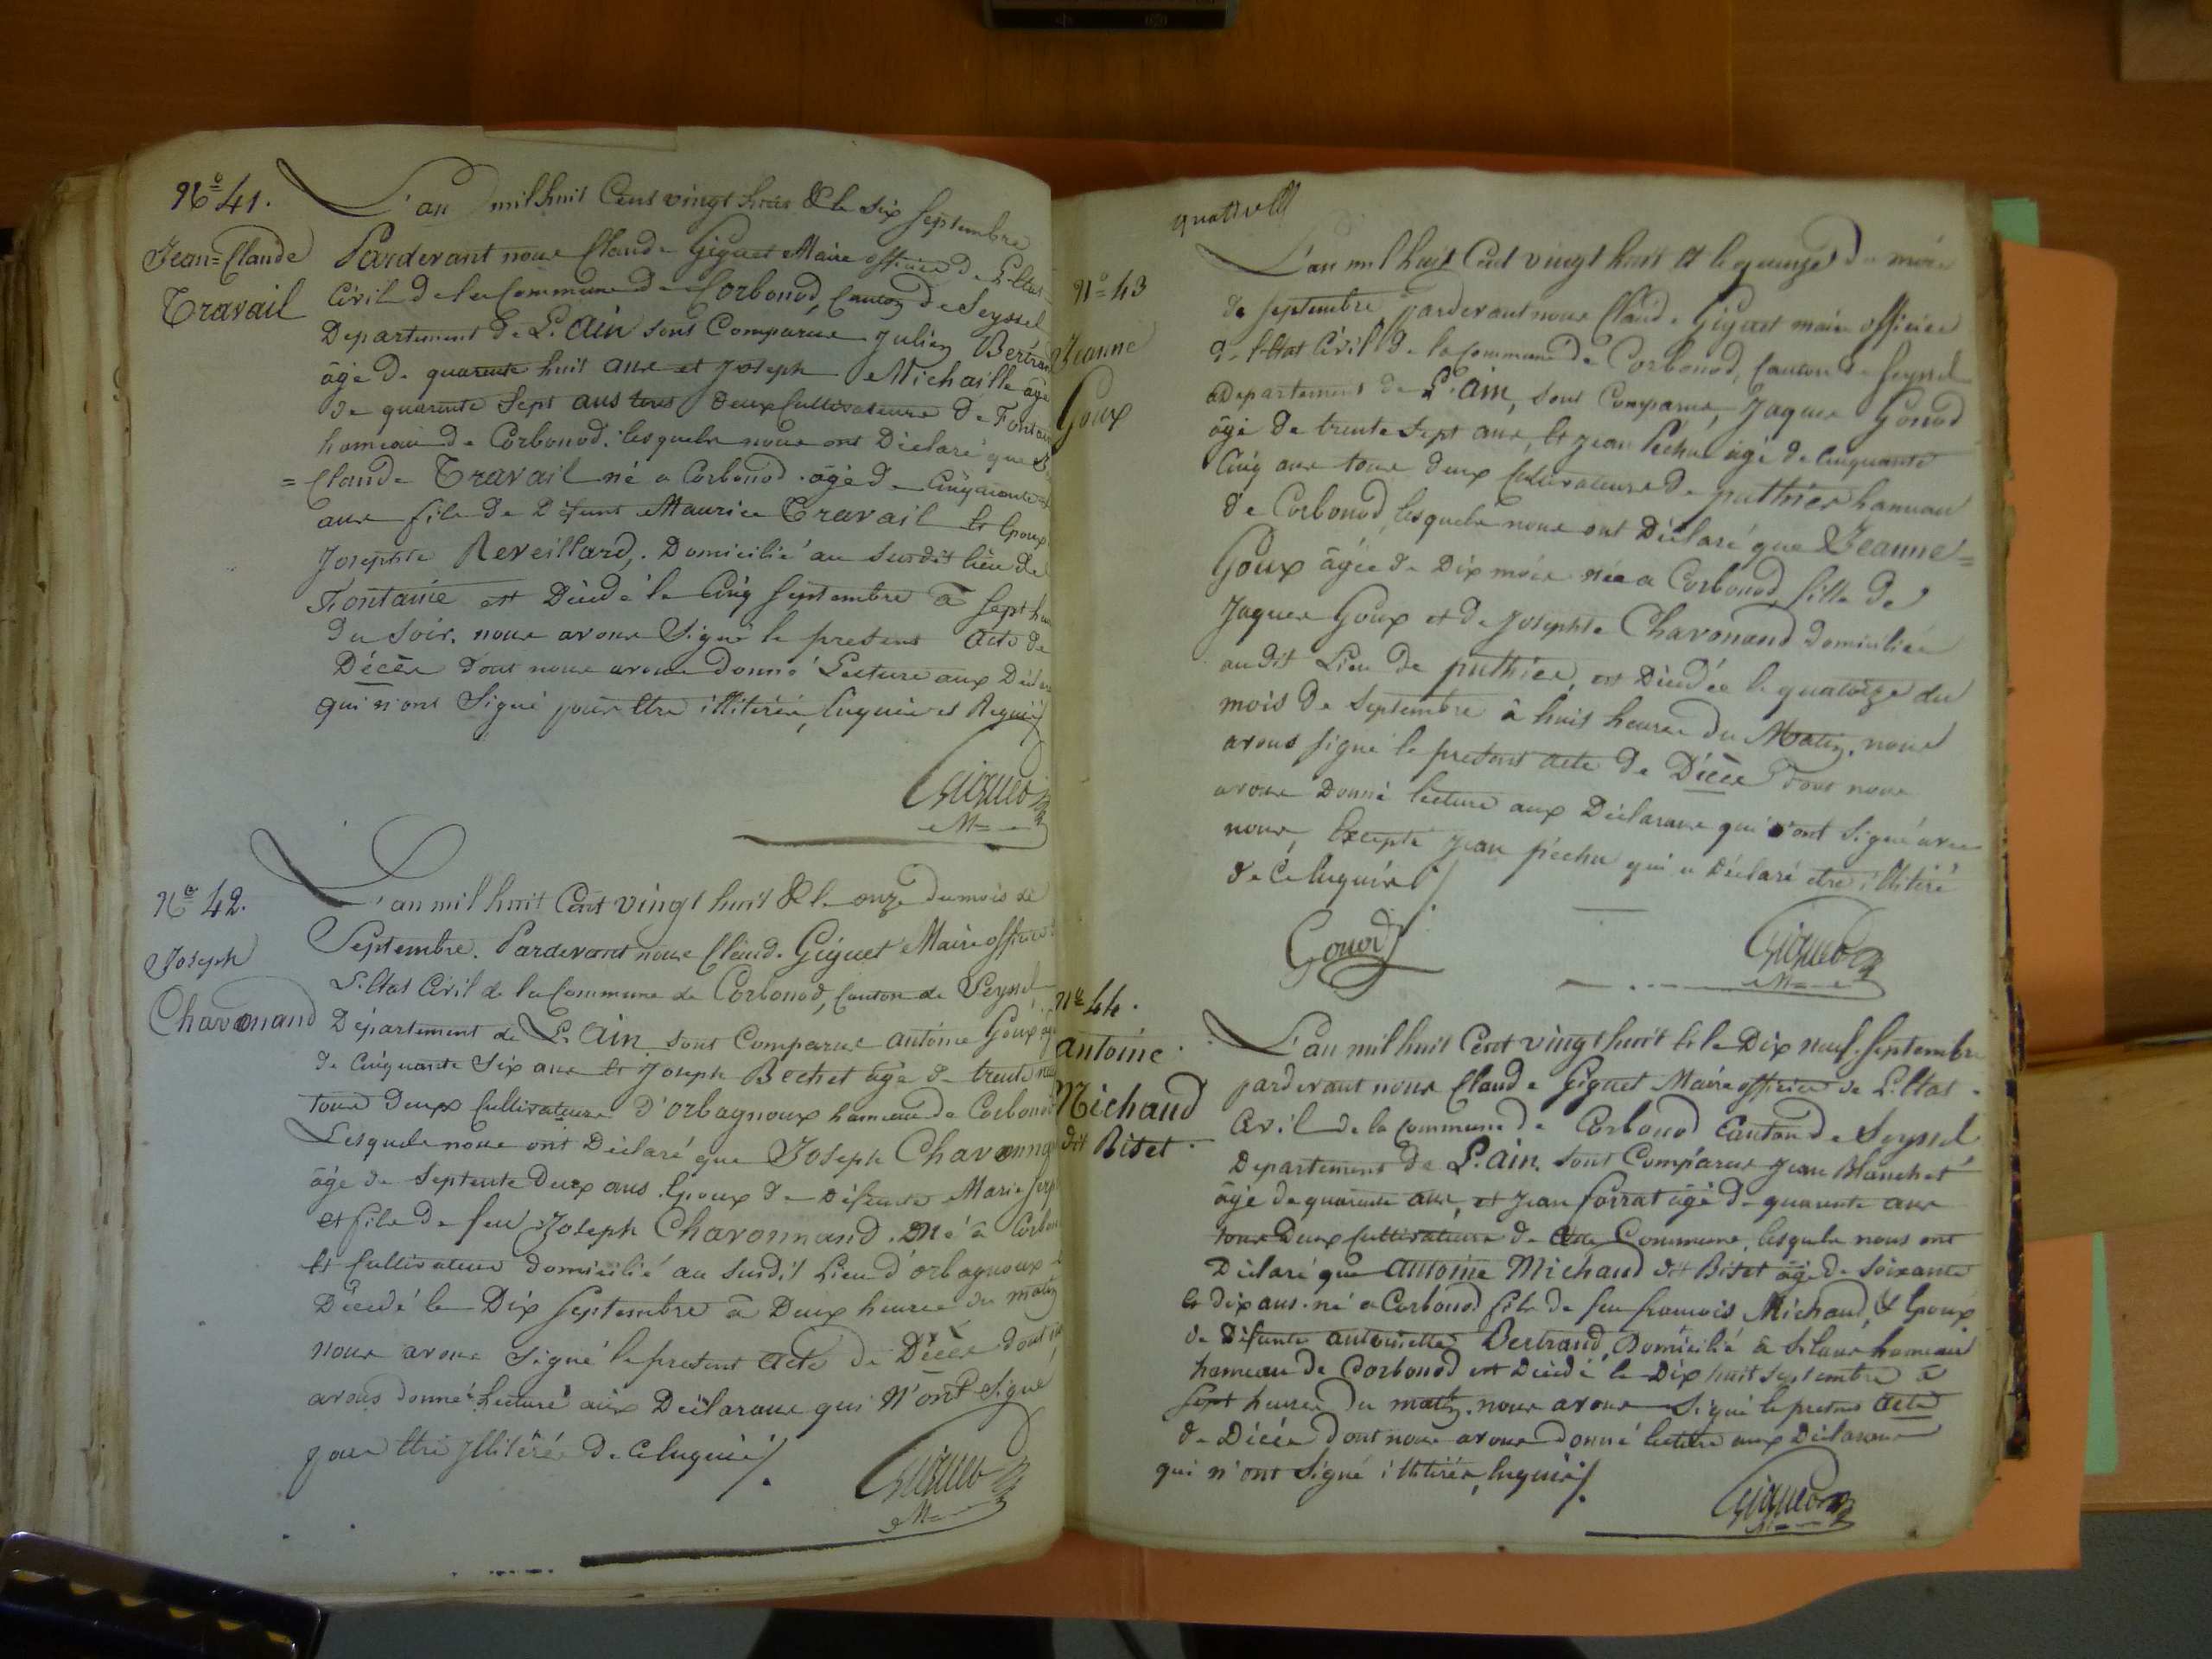 N.o 41.
Jean=Claude
Travail
L'an mil huit Cent vingt huit & le six septembre
Pardevant nous Claude Giguet Maire officier de L'Etat
Civil de la Commune de Corbonod, Canton de Seyssel
Departement de L'Ain sont Comparus Julien Bertrand
âgé de quarente huit ans et Joseph Michaille âgé
de quarente Sept ans tous deux Cultivateurs de Fontaine
hameau de Corbonod. lesquels nous ont Déclaré que
= Claude Travail né a Corbonod. âgé de Cinquante
ans fils de Défunt Maurice Travail et Epoux
Josephte Reveillard,. Domicilié au susdit lieu de
Fontaine est Décédé le Cinq septembre à sept
du soir. nous avons Signé le present acte de
Décès dont nous avons donné Lecture aux
qui n'ont Signé pour Etre illiterés, Enquis et Requis
Giguet
M=
N.o 42.
Joseph
Chavonand
L'an mil huit Cent vingt huit & le onze du mois de
Septembre. Pardevant nous Claude Giguet Maire officier
L'Etat Civil de la Commune de Corbonod, Canton de Seyssel
Département de L'Ain sont Comparus antoine Goux
de Cinquante Six ans et Joseph Bechet âgé de trente
tous deux Cultivateurs d'orbagnoux hameau de Corbonod
Lesquels nous ont Déclaré que Joseph Chavonnand
âgé de Septente Deux ans. Epoux de Défunte Marie
et fils de feu Joseph Chavonnand. Né à
et Cultivateur domicilié au susdit Lieu d'orbagnoux
Décédé le Dix Septembre à Deux heures du matin
nous avons Signé le present acte de Décès dont
avons donné Lecture aux Déclarans qui N'ont Signé
pour Etre Jllitérés De Ce Enquis/.
Giguet
M=
quatre
N.o 43
Jeanne
Goux
L'an mil huit Cent vingt huit et le quinze du mois
de septembre pardevant nous Claude Giguet maire officier
de l'Etat Civil de la Commune de Corbonod, Canton de Seyssel
Departement de L'Ain, sont Comparus, Jaques Gonod
âgé de trente sept ans, et Jean Pechu âgé de Cinquante
Cinq ans tous deux Cultivateurs de puthier hameau
de Corbonod, lesquels nous ont Déclaré que Jeanne=
Goux âgée de Dix mois née a Corbonod fille de
Jaques Goux et de Josephte Chavonand Domiciliés
au dit Lieu de puthier, est Décédée le quatorze du
mois de Septembre à huit heures du Matin. nous
avons signé le present acte de Décès dont nous
avons Donné lecture aux Déclarans qui ont Signé avec
nous, Excepté Jean péchu qui a Déclaré etre illitéré
de Ce Enquis/.
Gonod
Giguet
M=
N.o 44.
antoine
Michaud
dit Bitet.
L'an mil huit Cent vingt huit et le Dix neuf. Septembre
pardevant nous Claude Giguet Maire officier de L'Etat
Civil de la Commune de Corbonod Canton de Seyssel
Departement de L'Ain. sont Comparus Jean Blanchet
âgé de quarente ans, et Jean forrat âgé de quarente ans
tous Deux Cultivateurs de Commune, lesquels nous ont
Déclaré que antoine Michaud dit Bitet âgé de Soixante
et dix ans. né a Corbonod fils de feu francois Michaud, & Epoux
de Défunte antoinette Bertrand, Domicilié à Silans hameau
hameau de Corbonod est Décédé le Dix huit septembre à
sept heures du matin. nous avons Signé le present acte
de Décès dont nous avons donné lecture aux Déclarans
qui n'ont Signé illitérés, Enquis/.
Giguet
M=